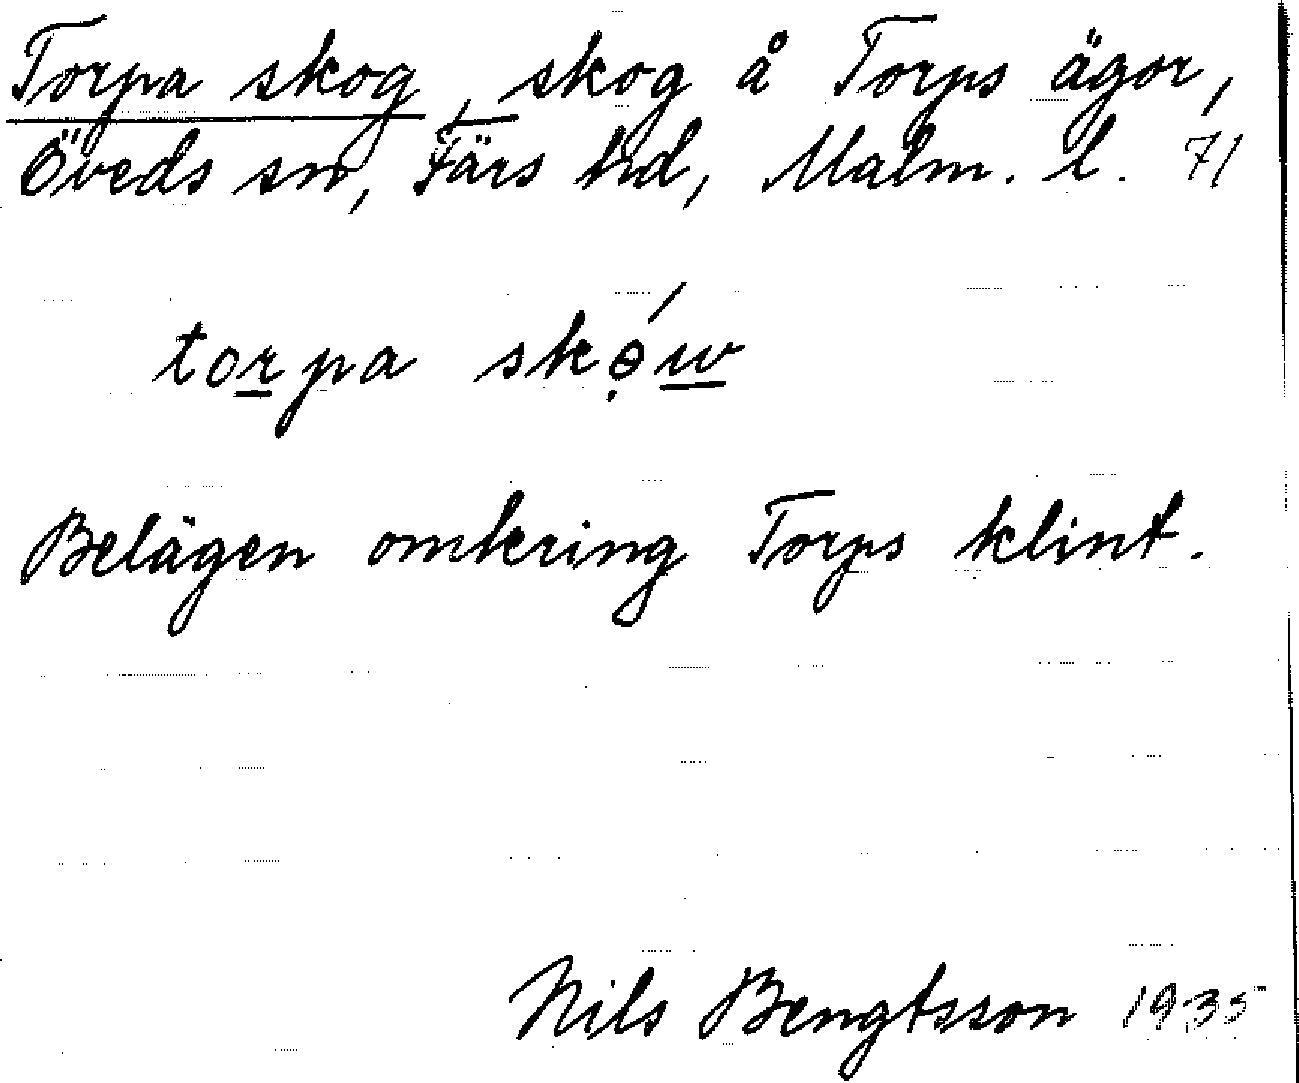 Torpa skog, skog å Torps ägor,
Öveds sn, Färs hd, Malm. l. 71
torpa skọ́w
Belägen omkring Torps klint.
Nils Bengtsson 1935